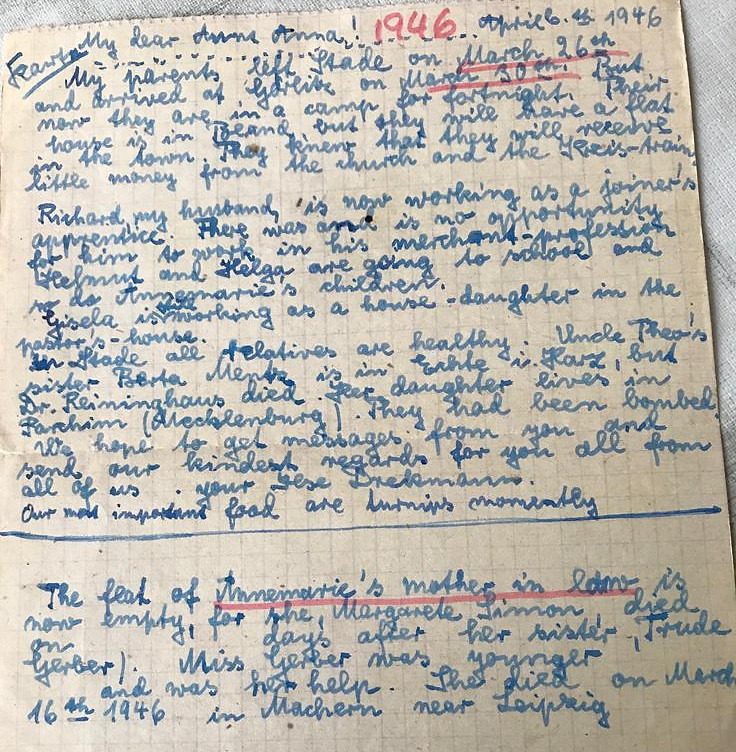 My dear Aunt Anna! 1946 April 6. th 1946
My parents left Stade on March 26th
and arrived at Görlitz on March 30th. But
now they are in a camp for fortnight. Their
house is in but they will have a flat
in the town. They knew that they will receive
little money from the church and the Kreis-train
Richard, my husband, is now working as a joiner's
apprentice. There was and is no opportunity
for him to work in his merchant-profession
Helmut and Helga are going to school and
so do Annemarie's children.
Gisela is working as a house-daughter in the
pastor's-house.
In Stade all relatives are healthy. Uncle Theo's
sister Berta Mentz is in Echte i. Harz, but
Dr. Reininghaus died. Her daughter lives in
Parchim (Mecklenburg). They had been bombed.
We hope to get messages from you and
send our kindest regards for you all from
all of us. your Gese Drekmann.
Our most important food are turnips momently
The flat of Annemarie's mother in law is
now empty, for she, Margarete Simon died
on days after her sister, Trude
Gerber). Miss Gerber was younger
and was her help. She died on March
16th 1946 in Machern near Leipzig